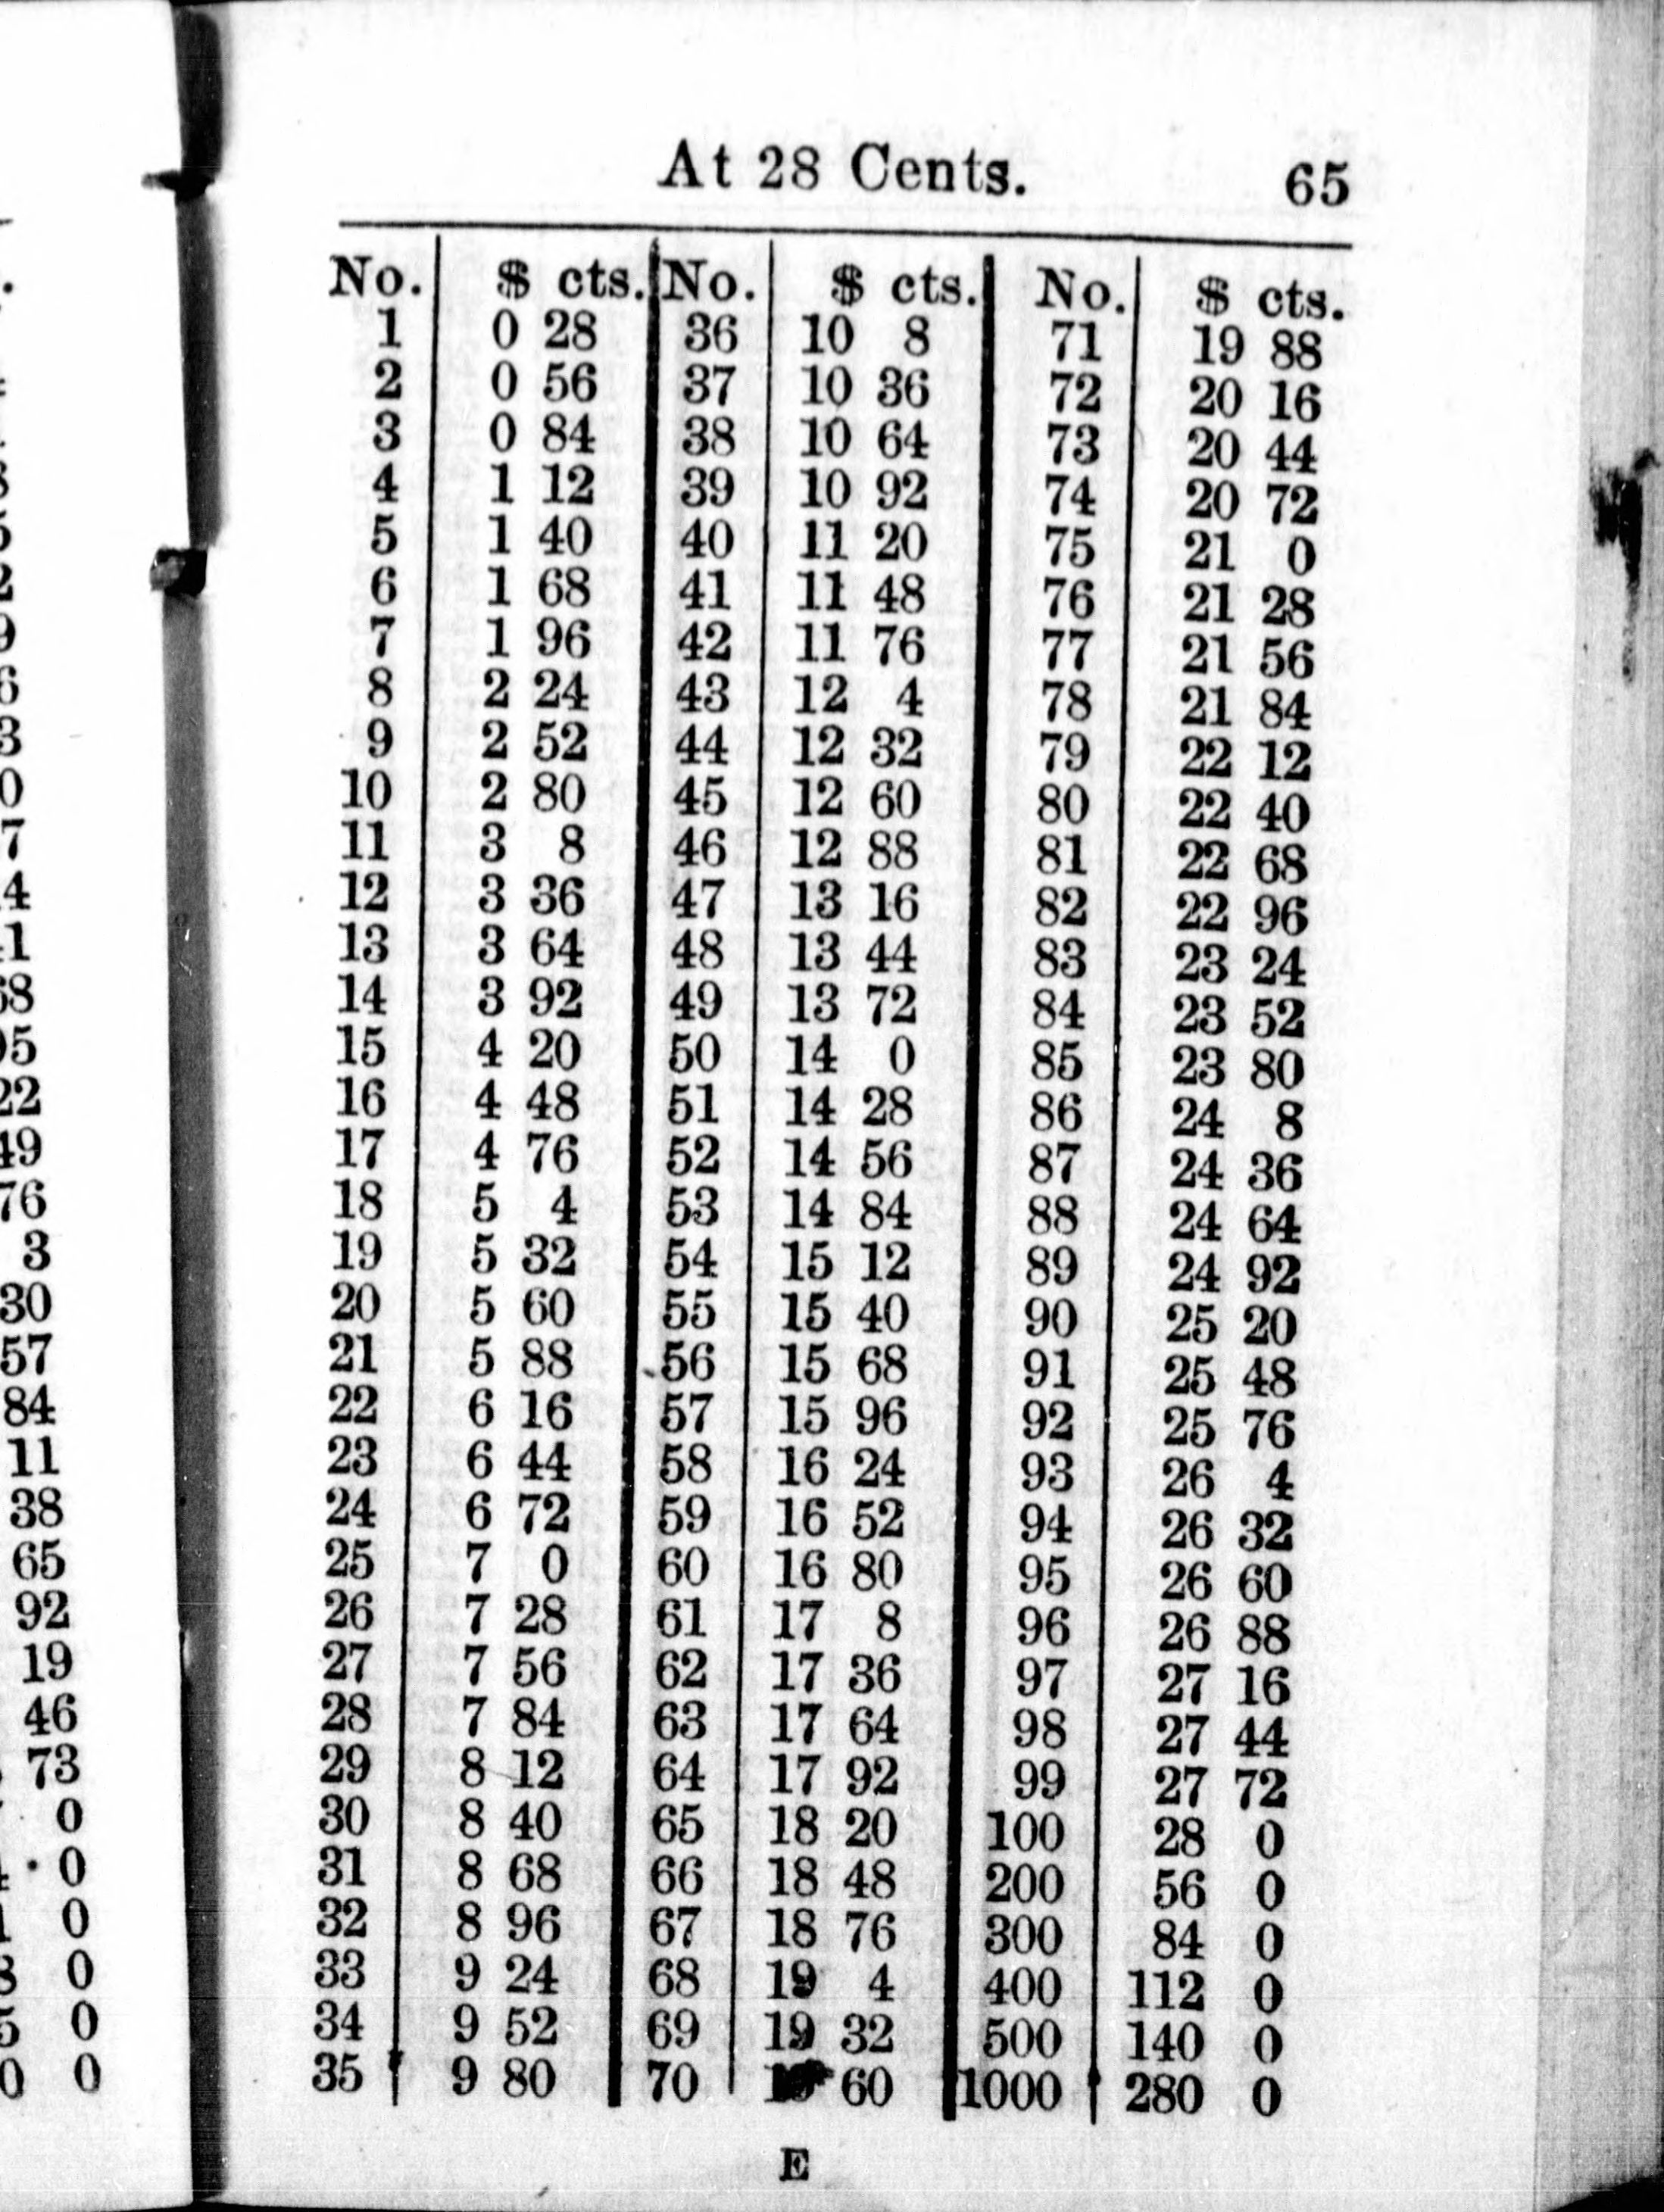 At 28 Cents. 65
No. $ cts. No. $ cts. No. $ cts.
1 0 28 36 10 8 71 19 88
2 0 56 37 10 36 72 20 16
3 0 84 38 10 64 73 20 44
4 1 12 39 10 92 74 20 72
5 1 40 40 11 20 75 21 0
6 1 68 41 11 48 76 21 28
7 1 96 42 11 76 77 21 56
8 2 24 43 12 4 78 21 84
9 2 52 44 12 32 79 22 12
10 2 80 45 12 60 80 22 40
11 3 8 46 12 88 81 22 68
12 3 36 47 13 16 82 22 96
13 3 64 48 13 44 83 23 24
14 3 92 49 13 72 84 23 52
15 4 20 50 14 0 85 23 80
16 4 48 51 14 28 86 24 8
17 4 76 52 14 56 87 24 36
18 5 4 53 14 84 88 24 64
19 5 32 54 15 12 89 24 92
20 5 60 55 15 40 90 25 20
21 5 88 56 15 68 91 25 48
22 6 16 57 15 96 92 25 76
23 6 44 58 16 24 93 26 4
24 6 72 59 16 52 94 26 32
25 7 0 60 16 80 95 26 60
26 7 28 61 17 8 96 26 88
27 7 56 62 17 36 97 27 16
28 7 84 63 17 64 98 27 44
29 8 12 64 17 92 99 27 72
30 8 40 65 18 20 100 28 0
31 8 68 66 18 48 200 56 0
32 8 96 67 18 76 300 84 0
33 9 24 68 19 4 400 112 0
34 9 52 69 19 32 500 140 0
35 9 80 70 19 60 1000 280 0
E